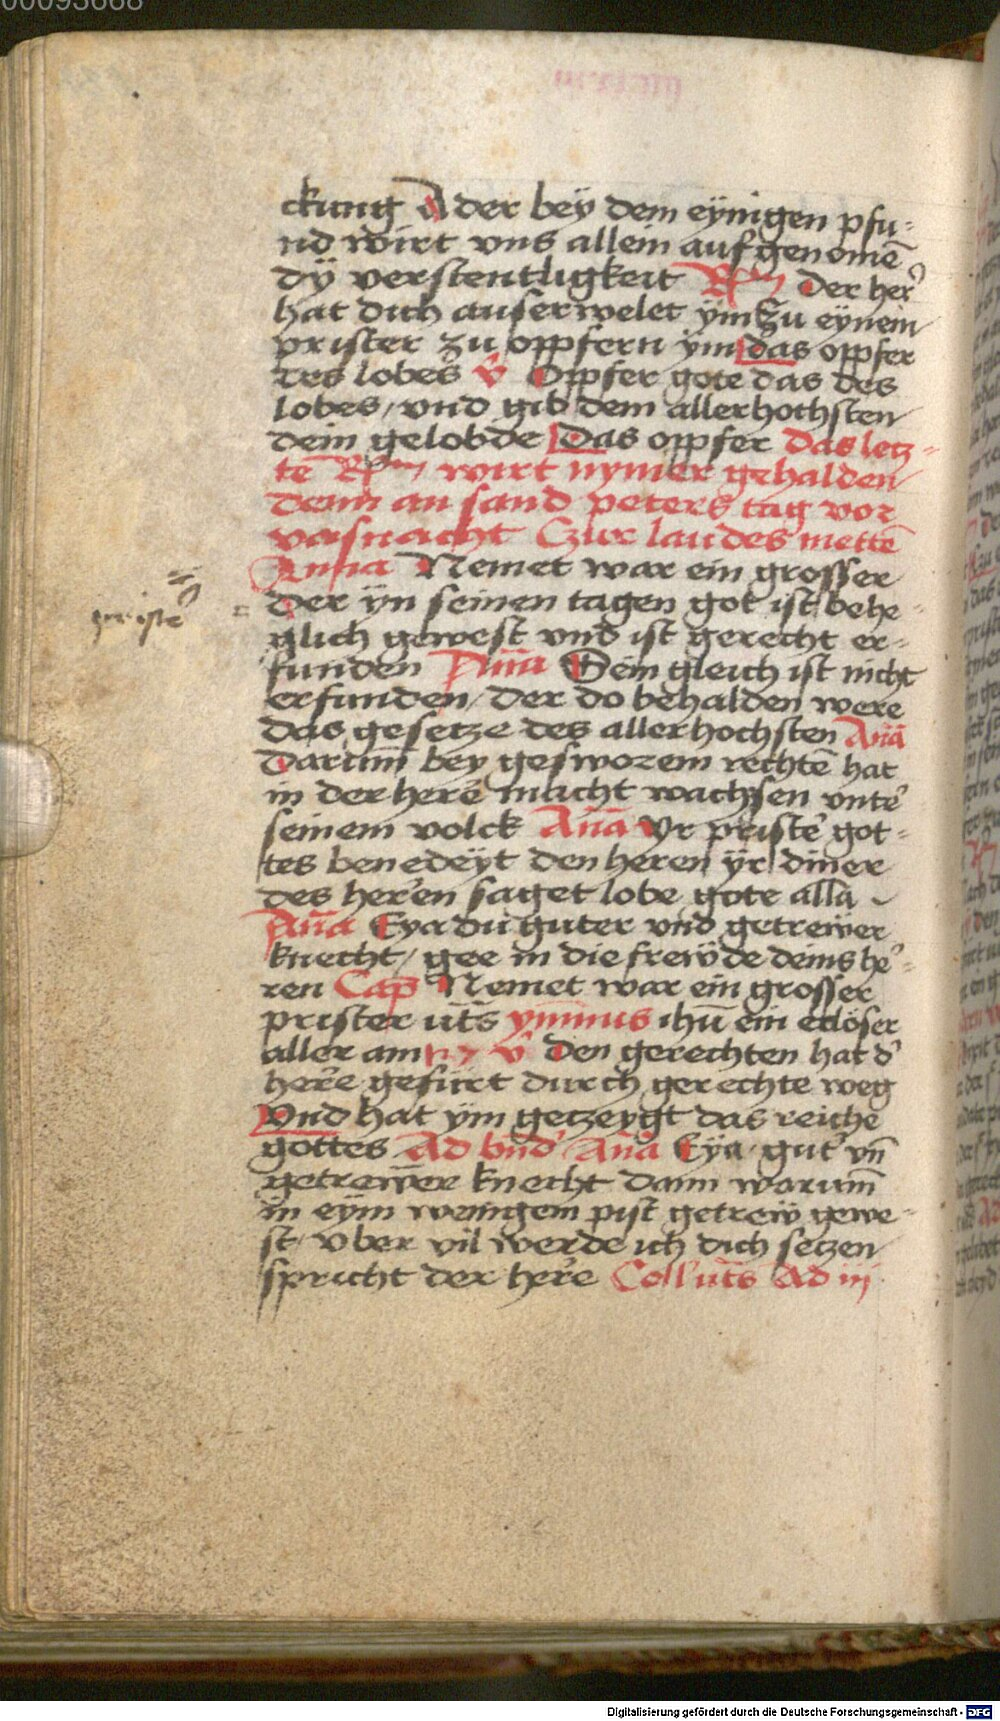 00093668
ckung Ader bey dem eÿnigen pfu-
nd wirt vns allein aufgenomē
dÿ verstentligkeit Rm Der her
hat dich auserwelet ÿm Zu eynem
prister zu opfern ÿm Das opfer
des lobes V Opfer gote das des
lobes / vnd gib dem allerhochsten
dein gelobde Das opfer Das letz-
te Rm wirt nymer gehalden
denn an sand peters tag vor
vasnacht Czur laudes mettē
Anna Nemet war ein grosser
priste =
Der ÿn seinen tagen got ist behe-
glich gewest vnd ist gerecht er-
funden Anna Sein gleich ist nicht
erfunden / der do behalden were
das gesetze des allerhochsten Aña
Darumb bey gesworem rechtē hat
in der herē macht wachsen vnter
seinem volck Aña Yr prister got-
tes benedeÿt den heren ÿr diner
des heren saget lobe gote alla
Aña Eya du guter vnd getrewer
knecht / gee in die frewde deins he-
ren Cap Nemet war ein grosser
prister ut̄s ymnus ihū ein erlöser
aller am V Den gerechten hat d'
herre gefurt durch gerechte weg
Vnd hat ÿm getzeygt das reiche
gottes Ad bnd' Aña Eÿa gut' vn̄
getrewer knecht dann warum̄
in eÿm wenigem pist getrew gewe-
st / Vber vil werde ich dich setzen
spricht der herre Coll' ut̄s Ad iij
Digitalisierung gefördert durch die Deutsche Forschungsgemeinschaft - DFG